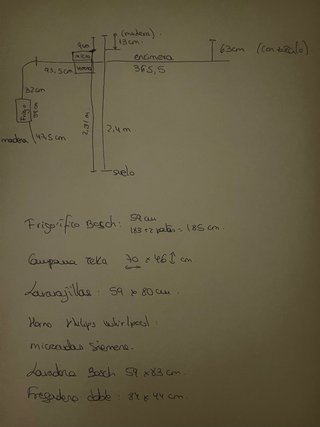 (madera)
13 cm.
9cm
encimera
63cm (con zócalo)
micro
horno
93,5cm
365,5
32cm
Frigo
59 cm
madera
47,5cm
2,4m
suelo
Frigorífico Bosch: 59 cm
183 + 2 patas = 185 cm.
Campana teka 70 x 46 cm.
Lavavajillas: 59 x 80 cm.
Horno Philips Whirlpool:
microondas Siemens.
Lavadora Bosch 59 x 83 cm.
Fregadero doble: 84 x 44 cm.